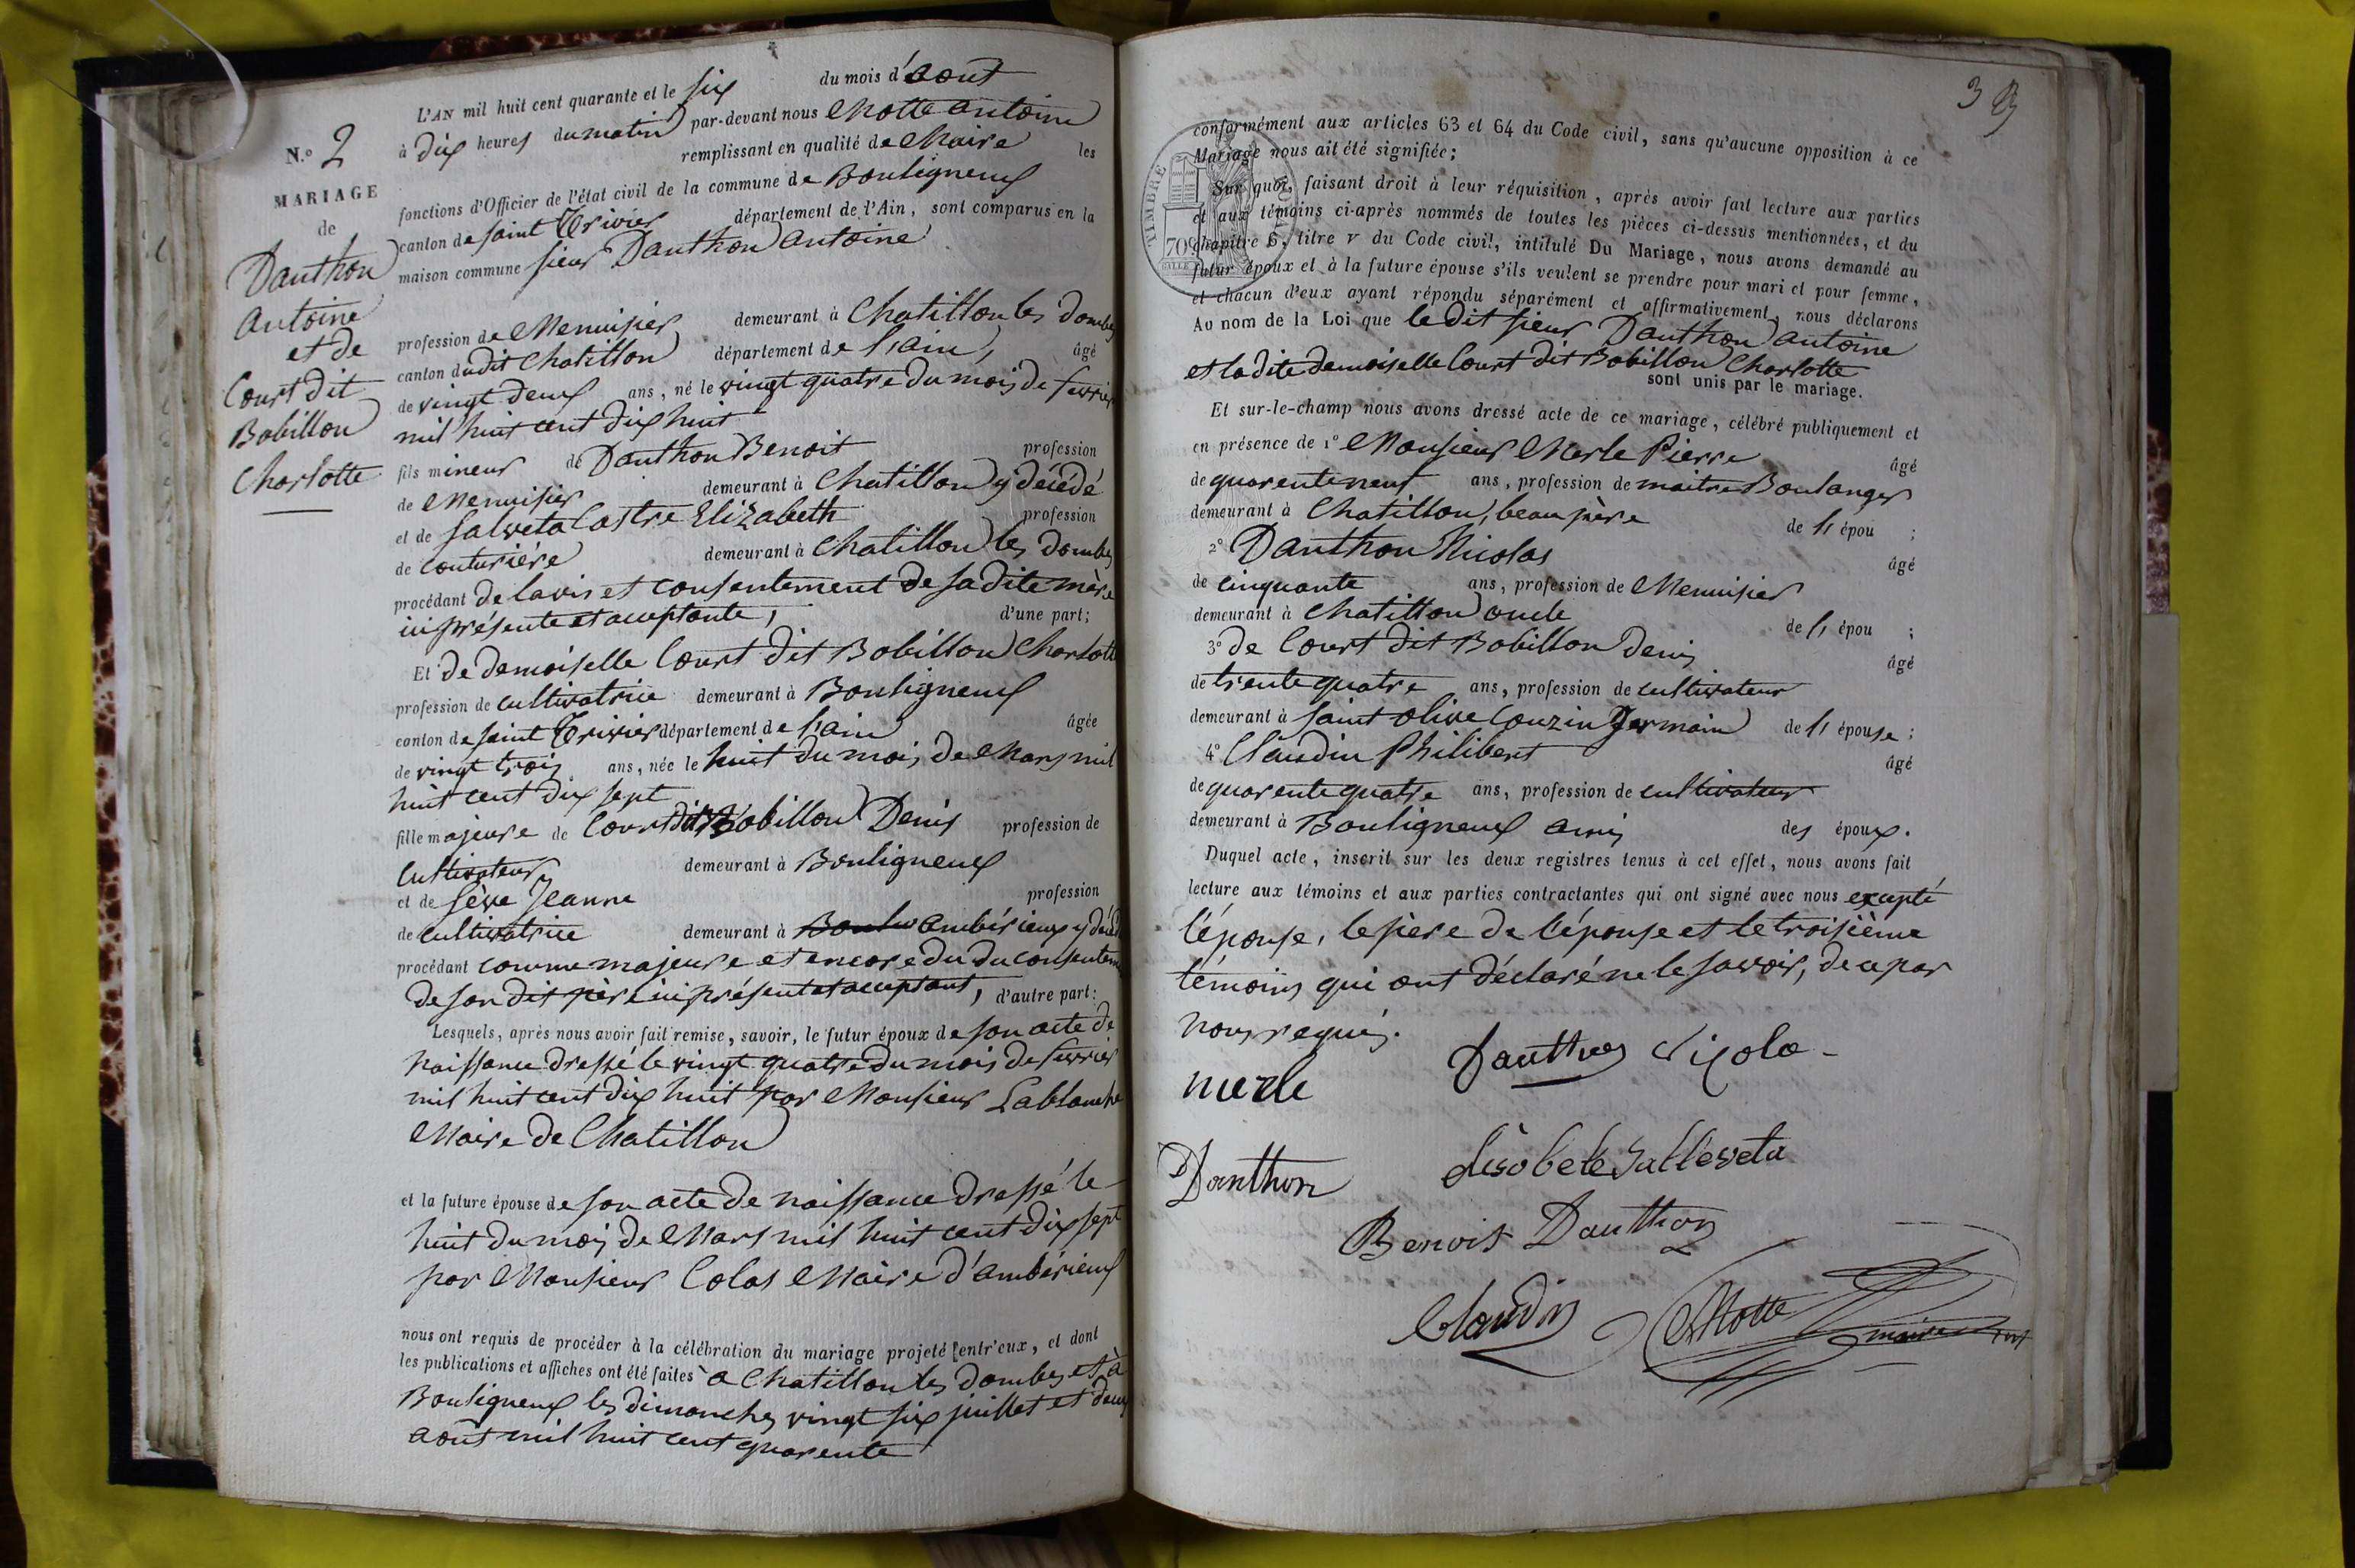 N.º 2
MARIAGE
de
Danthon
Antoine
et de
Court dit
Bobillon
Charlotte
L'AN mil huit cent quarante et le six du mois d'aout
à dix heures du matin par-devant nous Motte antoine
remplissant en qualité de Maire les
fonctions d'Officier de l'état civil de la commune de Bouligneux
canton de saint Trivier département de l'Ain, sont comparus en la
maison commune sieur Danthon antoine
profession de Menuisier demeurant à Chatillon les Dombes
canton dudit Chatillon département de l'ain, âgé
de vingt deux ans, né le vingt quatre du mois de fevrier
mil huit cent dix huit
fils mineur de Danthon Benoit profession
de Menuisier demeurant à Chatillon y décédé
et de Salveta Castre Elizabeth profession
de couturière demeurant à Chatillon les Dombes
procédant de lavis et consentement de sadite mère
ici présente et acceptante, d'une part;
Et de demoiselle Court dit Bobillon Charlotte
profession de cultivatrice demeurant à Bouligneux
canton de saint Trivier département de l'ain âgée
de vingt trois ans, née le huit du mois de Mars mil
huit cent dix sept
fille majeure de Court dit Bobillon Denis profession de
Cultivateur demeurant à Bouligneux
et de Sève Jeanne profession
de cultivatrice demeurant à ambérieux y décédé
procédant comme majeure et encore du du consentem
de son dit père ici présent et acceptant, d'autre part:
Lesquels, après nous avoir fait remise, savoir, le futur époux de son acte de
Naissance dressé le vingt quatre du mois de fevrier
mil huit cent dix huit par Monsieur Lablanche
Maire de Chatillon
et la future épouse de son acte de naissance dressé le
huit du mois de Mars mil huit cent dix sept
par Monsieur Colas Maire d'ambérieux
nous ont requis de procéder à la célébration du mariage projeté entr'eux, et dont
les publications et affiches ont été faites à Chatillon les dombes et à
Bouligneux les dimanches vingt six juillet et deux
aout mil huit cent quarente
3
conformément aux articles 63 et 64 du Code civil, sans qu'aucune opposition à ce
Mariage nous ait été signifiée;
Sur quoi, faisant droit à leur réquisition, après avoir fait lecture aux parties
et aux témoins ci-après nommés de toutes les pièces ci-dessus mentionnées, et du
chapitre 6, titre v du Code civil, intitulé Du Mariage, nous avons demandé au
futur époux et à la future épouse s'ils veulent se prendre pour mari et pour femme,
et chacun d'eux ayant répondu séparément et affirmativement, nous déclarons
Au nom de la Loi que le dit sieur Danthon antoine
et la dite demoiselle Court dit Bobillon Charlotte
sont unis par le mariage.
Et sur-le-champ nous avons dressé acte de ce mariage, célébré publiquement et
en présence de 1º Monsieur Merle Pierre âgé
de quarente neuf ans, profession de maitre Boulanger
demeurant à Chatillon, beau père de l'épou ;
2º Danthon Nicolas âgé
de cinquante ans, profession de Menuisier
demeurant à Chatillon oncle de l'épou ;
3º de Court dit Bobillon Denis âgé
de trente quatre ans, profession de cultivateur
demeurant à saint olive Couzin Germain de l'épouse ;
4º Claudin Philibert âgé
de quarente quatre ans, profession de cultivateur
demeurant à Bouligneux amis des époux.
Duquel acte, inscrit sur les deux registres tenus à cet effet, nous avons fait
lecture aux témoins et aux parties contractantes qui ont signé avec nous excepté
l'épouse, le père de l'épouse et le troisième
témoins qui ont déclaré ne le savoir, de ce par
nous requis.
TIMBRE
70
merle
Danthon Nicola
Danthon
Benoit Danthon
Claudin
Motte
maire